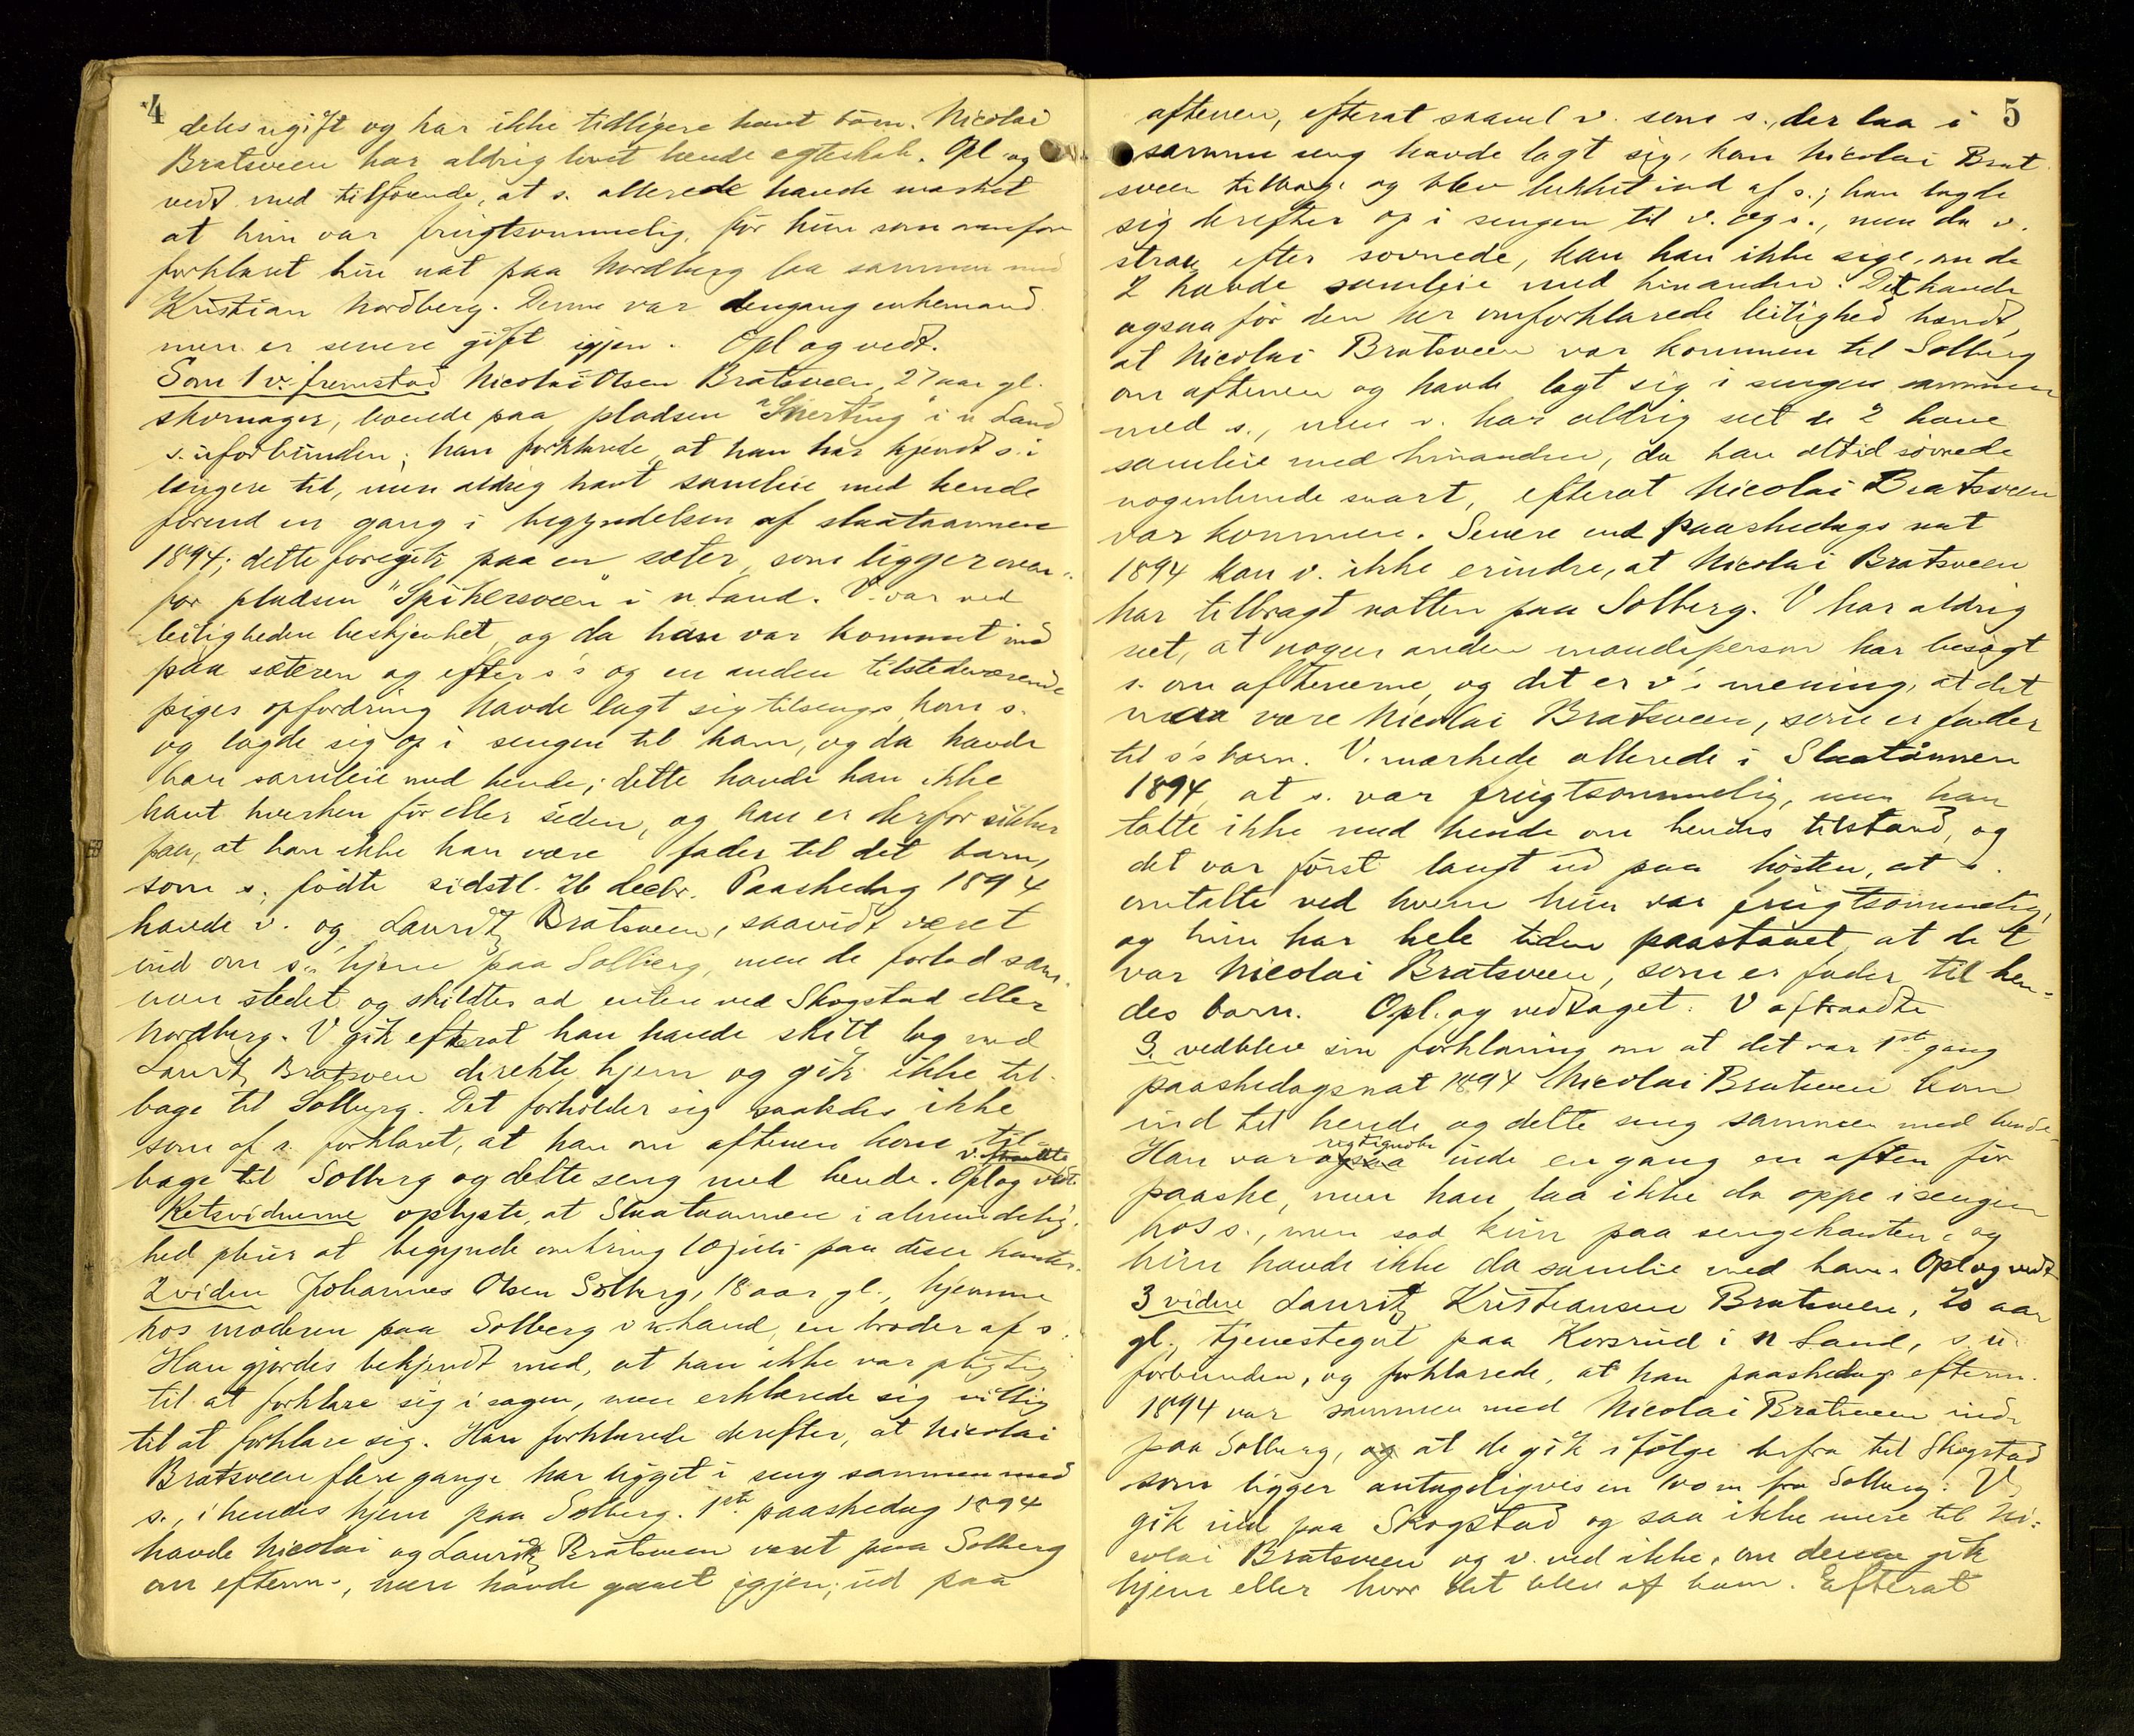 4
deles ugift og har ikke tidligere havt børn. Nicolai
Bratsveen har aldrig lovet hende egteskab. Opl og
vedt med tilføiende, at s. allerede havde mærket
at hun var frugtsommelig, før hun som ovenfor
forklaret hin nat paa Nordberg laa sammen med
Kristian Nordberg. Denne var dengang enkemand
men er senere gift igjen. Opl og vedt.
Som 1 v. fremstod Nicolai Olsen Bratsveen, 27 aar gl.
skomager, boende paa pladsen i n Land
s. uforbunden; han forklarede at han har kjendt s. i
længere tid, men aldrig havt samleie med hende
förend en gang i begyndelsen af slaataannen
1894; dette foregik paa en sæter, som ligger oven-
for pladsen "Spikersveen" i n. Land. V. var ved
leiligheden beskjenket, og da han var kommet ind
paa sæteren og efter s's og en anden tilstedeværende
piges opfordring havde lagt sig tilsengs kom s.
og lagde sig op i sengen til ham, og da havde
han samleie med hende; dette havde han ikke
havt hverken før eller siden, og han er derfor sikker
paa, at han ikke kan være fader til det barn,
som s. fødte sidstl. 26 decbr. Paaskedag 1894
havde v. og Lauritz Bratsveen, saavidt været
ind om s's hjem paa Solberg, men de forlod sam-
men stedet og skildtes ad enten ved Skogstad eller
Nordberg. V gik efterat han havde skilt lag med
Lauritz Bratsveen direkte hjem og gik ikke til-
bage til Solberg. Det forholder sig saaledes ikke
som af s. forklaret, at han om aftenen kom til-
bage til Solberg og delte seng med hende. Opl og vedt. v. fratraadte
Retsvidnerne oplyste, at Slaataannen i almindelig-
hed pleier at begynde omkring 10 juli paa disse kanter.
2 vidne Johannes Olsen Solberg, 18 aar gl., hjemme
hos moderen paa Solberg i n. Land, en broder af s.
Han gjordes bekjendt med, at han ikke var pligtig
til at forklare sig i sagen, men erklærede sig villig
til at forklare sig. Han forklarede derefter, at Nicolai
Bratsveen flere gange har ligget i seng sammen med
s., i hendes hjem paa Solberg. 1ste paaskedag 1894
havde Nicolai og Lauritz Bratsveen været paa Solberg
om efterm., men havde gaaet igjen; ud paa
5
aftenen, efterat saavel v. som s., der laa i
samme seng havde lagt sig, kom Nicolai Brat-
sveen tilbage og blev lukket ind af s.; han lagde
sig derefter op i sengen til v. og s., men da v.
strax efter sovnede, kan han ikke sige, om de
2 havde samleie med hinanden. Det havde
ogsaa før den her omforklarede leilighed hændt,
at Nicolai Bratsveen var kommen til Solberg
om aftenen og havde lagt sig i sengen sammen
med s., men v. har aldrig seet de 2 have
samleie med hinanden, da han altid sovnede
nogenlunde snart, efterat Nicolai Bratsveen
var kommen. Senere end paaskedags nat
1894 kan v. ikke erindre, at Nicolai Bratsveen
har tilbragt natten paa Solberg. V har aldrig
seet, at nogen anden mandsperson har besøgt
s. om aftenerne, og det er v's mening, at det
maa være Nicolai Bratsveen, som er fader
til s's barn. V. mærkede allerede i Slaatannen
1894, at s. var frugtsommelig, men han
talte ikke med hende om hendes tilstand, og
det var først langt ud paa høsten, at s.
omtalte ved hvem hun var frugtsommelig,
og hun har hele tiden paastaaet, at det
var Nicolai Bratsveen, som er fader til hen-
des barn. Opl. og vedtaget. V aftraadte
S. vedblev sin forklaring om at det var 1ste gang
paaskedagsnat 1894 Nicolai Bratsveen kom
ind til hende og delte seng sammen med hende.
Han var ogsaa rigtignok inde en gang en aften før
paaske, men han laa ikke da oppe i sengen
hos s., men sad kun paa sengekanten, og
hun havde ikke da samleie med ham. Opl og vedt
3 vidne Lauritz Kristiansen Bratsveen, 20 aar
gl., tjenestegut paa Korsrud i n Land, s. u-
forbunden, og forklarede, at han paaskedag efterm.
1894 var sammen med Nicolai Bratsveen inde
paa Solberg, og at de gik i følge derfra til Skogstad
som ligger antageligvis en 100 m fra Solberg. V.
gik ind paa Skogstad og saa ikke mere til Ni-
colai Bratsveen og v. ved ikke, om denne gik
hjem eller hvor det blev af ham. Efterat